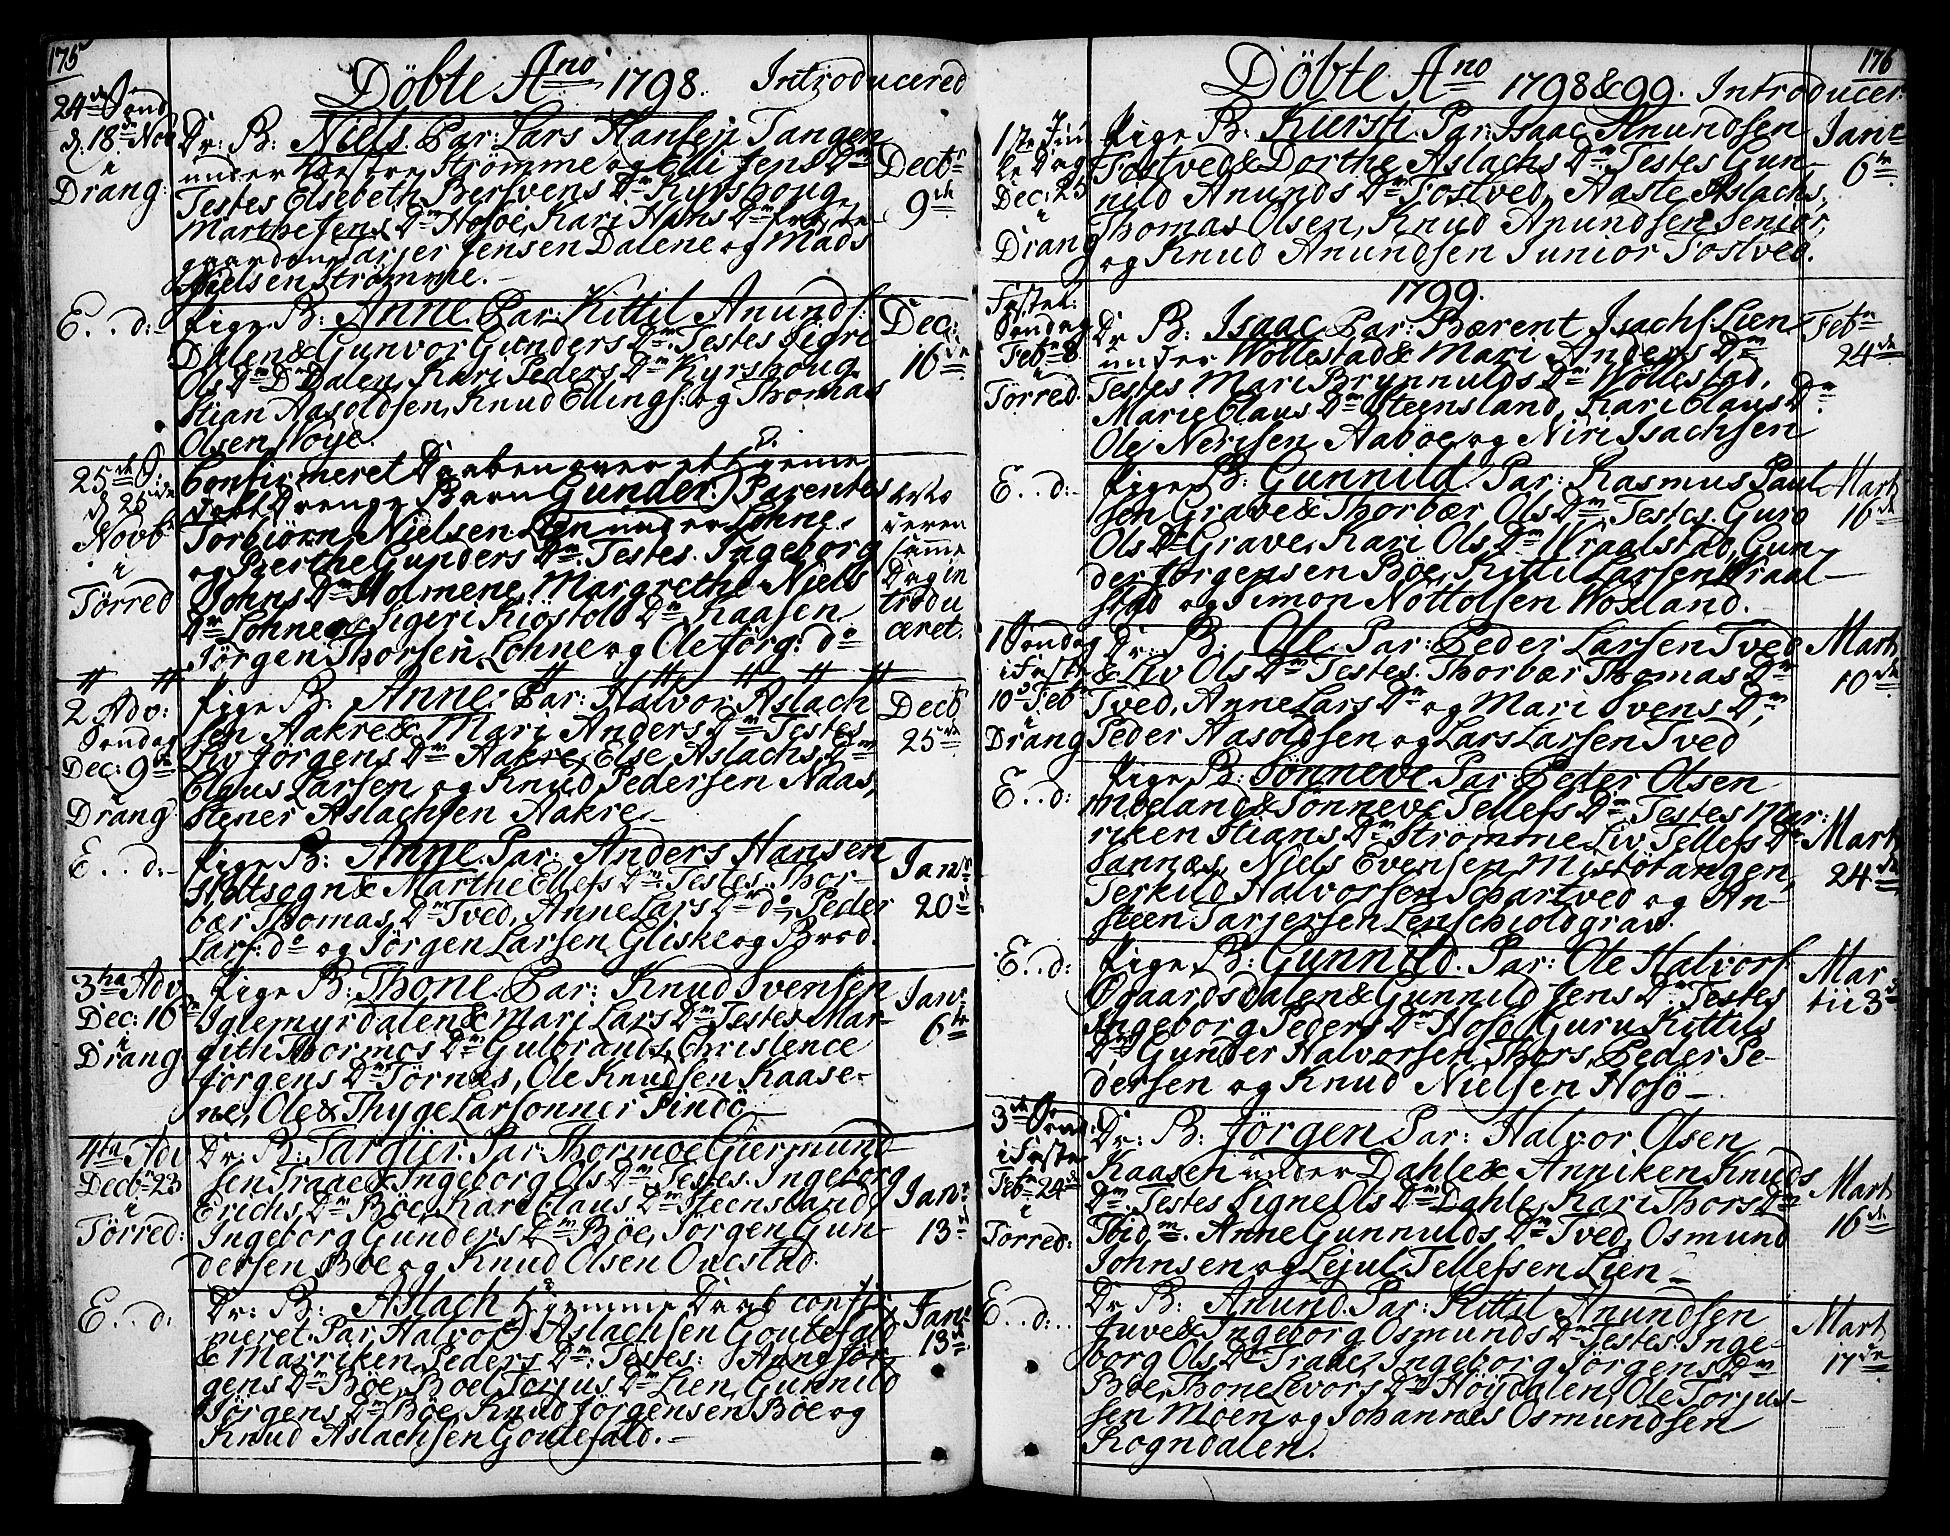 175
Döbte Ano 1798. Introducered
24de Sönd
d. 18de Nov
i
Drang:
Dr: B: Niels. Par: Lars Hansen Tangen
under Vestre Strömme og Elli Jens Dr
Testes Elsebeth Bersvens Dr Kyrshoug,
Marthe Jens Dr Hosöe, Kari Hans Dr
gaarden Tarjer Jensen Dalene og Mads
Nielsen Strömme.
Decbr
9de
E..d:
Pige B: Anne. Par: Kittil Anunds:
Dalen & Gunvor Gunders Dr. Testes Sigri
Ols Dr Dalen, Kari Peders Dr Kyrshoug
Stian Aasoldsen, Knud Ellings: og Thomas
Olsen Voye.
Dec:
16de
25de S:
d 25de
Novbr
i
Törred
Confirmeret Daaben over et Hjemme
döbt Drenge Barn Gunder. Parentes
Torbiörn Nielsen Lien under Lohne
og Berthe Gunders Dr. Testes. Ingeborg
Johns Dr Holmene, Margrethe Niels
Dr Lohne og Sigeri Kiöstold Dr Kaasen
Jörgen Thorsen Lohne og Ole Jörg: do
deren
samme
Dag in
trodu
ceret.
2 Adv:
Söndag
Dec: 9de
i
Drang
Pige B: Anne. Par: Halvor Aslach
sen Aakre & Mari Anders Dr Testes
Liv Jörgens Dr Aakre, Else Aslachs Dr
Claus Larsen og Knud Pedersen Naas,
Stener Aslachsen Aakre.
Decbr
25de
E..d:
Pige B: Anne. Par: Anders Hansen
Holtsogn & Marthe Ellefs Dr. Testes. Thor-
bær Thomas Dr Tved, Anne Lars Dr do, Peder
Lars: do og Jörgen Larsen Gliske og Brod.
Janr
20de
3tia Adv
Dec: 16de
i
Drang
Pige B: Thone. Par: Knud Svensen
Iglemyrdalen & Mari Lars Dr Testes. Mar-
grith Thormos Dr Gulbrands, Christence
Jörgens Dr Törnes, Ole Knudsen Kaase-
ne, Ole & Thyge Larsönner Findö
Janr
6te
4ta Adv
Decbr 23
i
Törred:
Dr: B: Targier. Par: Thormoe Giermund
sen Traae & Ingeborg Ols Dr. Testes. Ingeborg
Erichs Dr Böe, Kari Claus Dr Steensland,
Ingeborg Gunders Dr Böe, Jörgen Gun-
dersen Böe og Knud Olsen Ovestad.
Janr
13de
E..d:
Dr: B: Aslach Hjemme Daab confir
meret. Par. Halvor Aslachsen Goutefald
& Marriken Peders Dr. Testes: Anne Jör-
gens Dr Böe, Boel Torjus Dr Lien, Gunnild
Jörgens Dr Böe, Knud Jörgensen Böe og
Knud Aslachsen Goutefald.
Janr
13de
176
Döbte Ano 1798 & 99. Introducer:
1ste Jule Dag
Dec: 25
i
Drang
Pige B: Kirsti. Par: Isaac Anundsen
Tostved & Dorthe Aslachs Dr Testes Gun-
nild Anunds Dr Tostved, Aaste Aslachs,
Thomas Olsen, Knud Anundsen Senior,
og Knud Anundsen Junior Tostved.
Janr
6te
1799.
Fastel:
Söndag
Febr
i
Törred
Dr B: Isaac. Par: Bærent Isachs Lien
under Wollestad & Mari Anders Dr
Testes Mari Brynnulds Dr Wollestad,
Marie Claus Dr Steensland, Kari Claus Dr
Ole Nerisen Aaböe og Niri Isachsen
Febr
24de
E..d:
Pige B: Gunnild. Par: Rasmus Paul-
sen Grave & Thorbær Ols Dr. Testes. Guro
Ols Dr Grave, Kari Ols Dr Wraalstad, Gun-
der Jörgensen Böe, Kittil Larsen Wraal-
stad og Simon Nottolsen Woxland.
Mart
16de
1 Söndag
i Faste
10de Febr
i
Drang
Dr: B: Ole. Par: Peder Larsen Tved
& Liv Ols Dr. Testes. Thorbær Thomas Dr
Tved, Anne Lars Dr og Mari Svens Dr,
Peder Aasoldsen og Lars Larsen Tved
Mart
10de
E..d:
Pige B: Sönneve. Par Peder Olsen
Moeland & Sönneve Tellefs Dr. Testes Mar:
riken Stians Dr Strömme, Liv Tellefs Dr
Sannæs, Niels Evensen Mistötangen,
Terkild Halvorsen Schartved og An-
steen Tarjersen Lenschioldgrav.
Mart
24de
E..d:
Pige B: Gunnild. Par: Ole Halvors
Ogaardsdalen & Gunnild Jens Dr. Testes
Ingeborg Peders Dr Hosö, Guru Kittils
Dr, Gunder Halvorsen Thors, Peder Pe-
dersen og Knud Nielsen Hosö
Mar
tii 3
3de Sönd:
i Faste
Febr 24de
i
Törred:
Dr: B: Jörgen Par: Halvor Olsen
Kaasen under Dahle & Anniken Knuds
Dr. Testes Signe Ols Dr Dahle, Kari Thors Dr
Ibidm. Anne Gunnulds Dr Tved, Osmund
Johnsen og Lejul Tellefsen Lien
Mart
16de
E..d:
Dr B: Anund. Par: Kittil Anundsen
Juve & Ingeborg Osmunds Dr Testes Inge-
borg Ols Dr Traae, Ingeborg Jörgens Dr
Böe, Thone Levors Dr Höydalen, Ole Torjus-
sen Moen og Johannes Osmundsen
Rogndalen.
Mart
17de